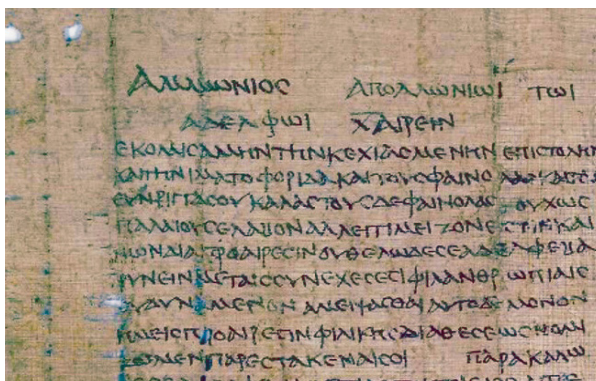 ΑΜΜΩΝΙΟΣ ΑΠΟΛΛΩΝΙΩΙ ΤΩΙ
ΑΔΕΛΦΩΙ ΧΑΙΡΕΙΝ
ΕΚΟΜΙΣΑΜΗΝ ΤΗΝ ΚΕΧΙΑΣΜΕΝΗΝ ΕΠΙΣΤΟΛΗΝ
ΚΑΙ ΤΗΝ ΙΜΑΤΟΦΟΡΙΔΑ ΚΑΙ ΤΟΥΣ ΦΑΙΝΟΛΑΣ ΚΑΙ ΤΑΣ
ΣΥΝΡΙΓΓΑΣ ΟΥ ΚΑΛΑΣ ΤΟΥΣ ΔΕ ΦΑΙΝΟΛΑΣ ΟΥΧ ΩΣ
ΠΑΛΑΙΟΥΣ ΕΛΑΒΟΝ ΑΛΛ ΕΙ ΤΙ ΜΕΙΖΟΝ ΕΣΤΙΝ ΚΑΙ
ΚΑΙΝΩΝ ΔΙΑ ΠΡΟΑΙΡΕΣΙΝ ΟΥ ΘΕΛΩ ΔΕ ΣΕ ΑΔΕΛΦΕ ΒΑ
ΡΥΝΕΙΝ ΜΕ ΤΑΙΣ ΣΥΝΕΧΕΣΕΣΙ ΦΙΛΑΝΘΡΩΠΙΑΙΣ
ΟΥ ΔΥΝΑΜΕΝΟΝ ΑΜΕΙΨΑΣΘΑΙ ΑΥΤΟ ΔΕ ΜΟΝΟΝ
ΗΜΕΙΣ ΠΡΟΑΙΡΕΣΙΝ ΦΙΛΙΚΗΣ ΔΙΑΘΕΣΕΩΣ ΝΟΜΙ
ΖΟΜΕΝ ΠΑΡΕΣΤΑΚΕΝΑΙ ΣΟΙ ΠΑΡΑΚΑΛΩ